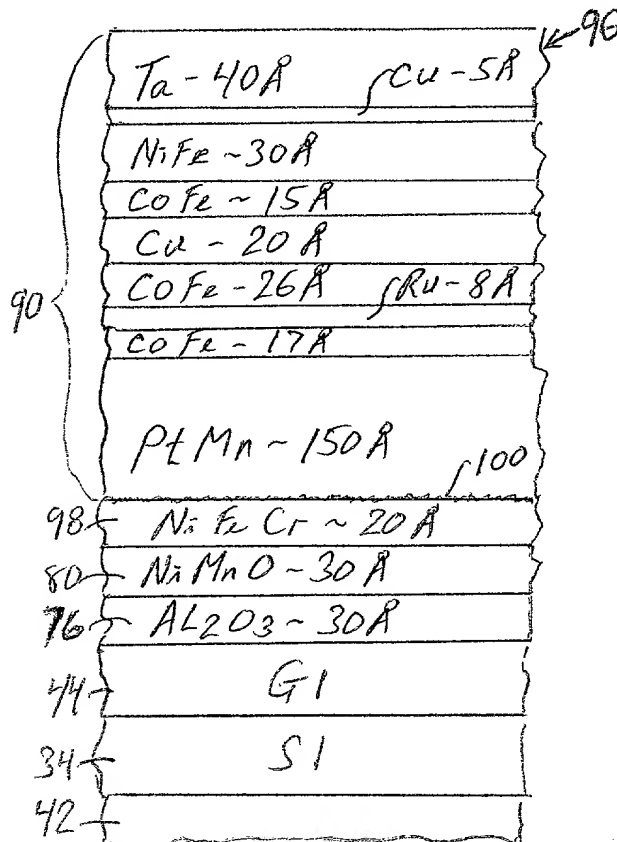 96
Ta - 40Å
Cu - 5Å
NiFe - 30Å
CoFe - 15Å
Cu - 20Å
CoFe - 26Å
Ru - 8Å
90
CoFe - 17Å
PtMn - 150Å
100
98
NiFeCr - 20Å
80
NiMnO - 30Å
76
AL2O3 - 30Å
44
G1
34
S1
42